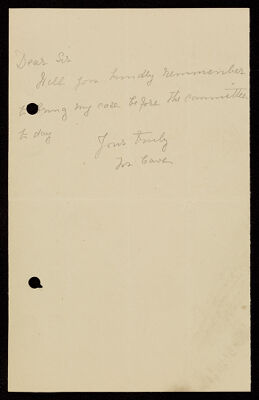 Dear Sir
Will you kindly remmember
to bring my case before the committee
to day
Yours truly